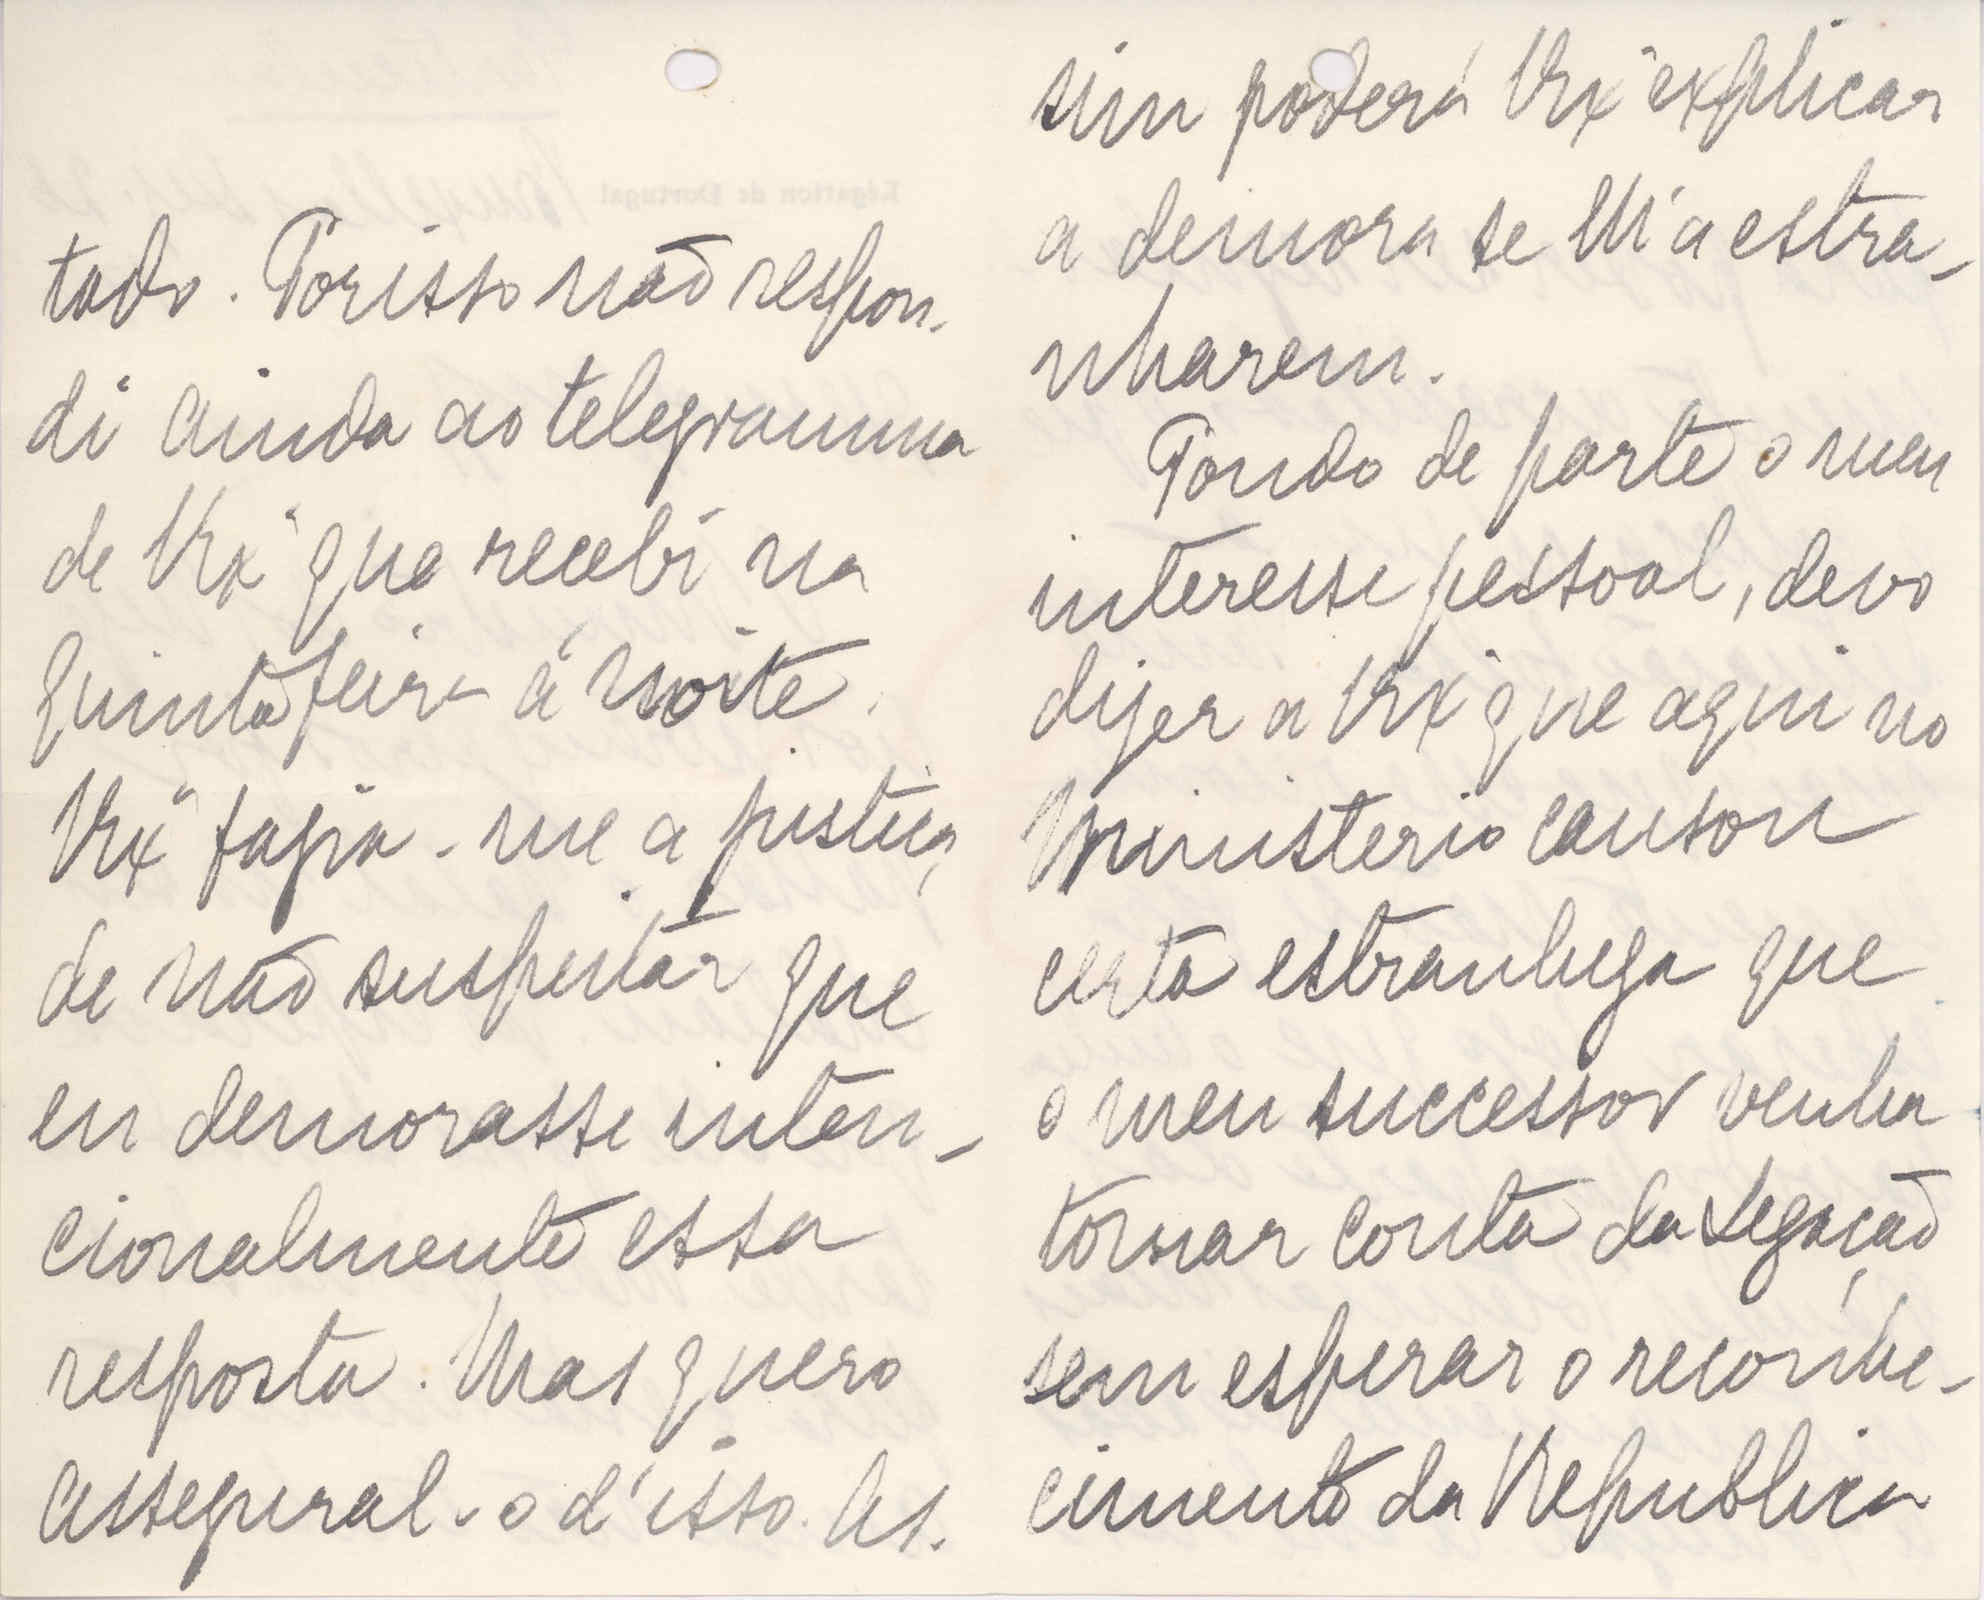 tado. Porisso não respon-
di ainda ao telegramma
de V Exª que recebi na
quinta feira á noite.
V Exª fazia-me a justiça
de não suspeitar que
eu demorasse inten-
cionalmente essa
resposta. Mas quero
assegural-o d'isso. As-
sim poderá V Exª explicar
a demora se lh'a estra-
nharem.
Pondo de parte o meu
interesse pessoal, devo
dizer a V Exª que aqui no
Ministerio causou
certa estranheza que
o meu successor venha
tomar conta da Legação
sem esperar o reconhe-
cimento da Republica
Légation de Portugal